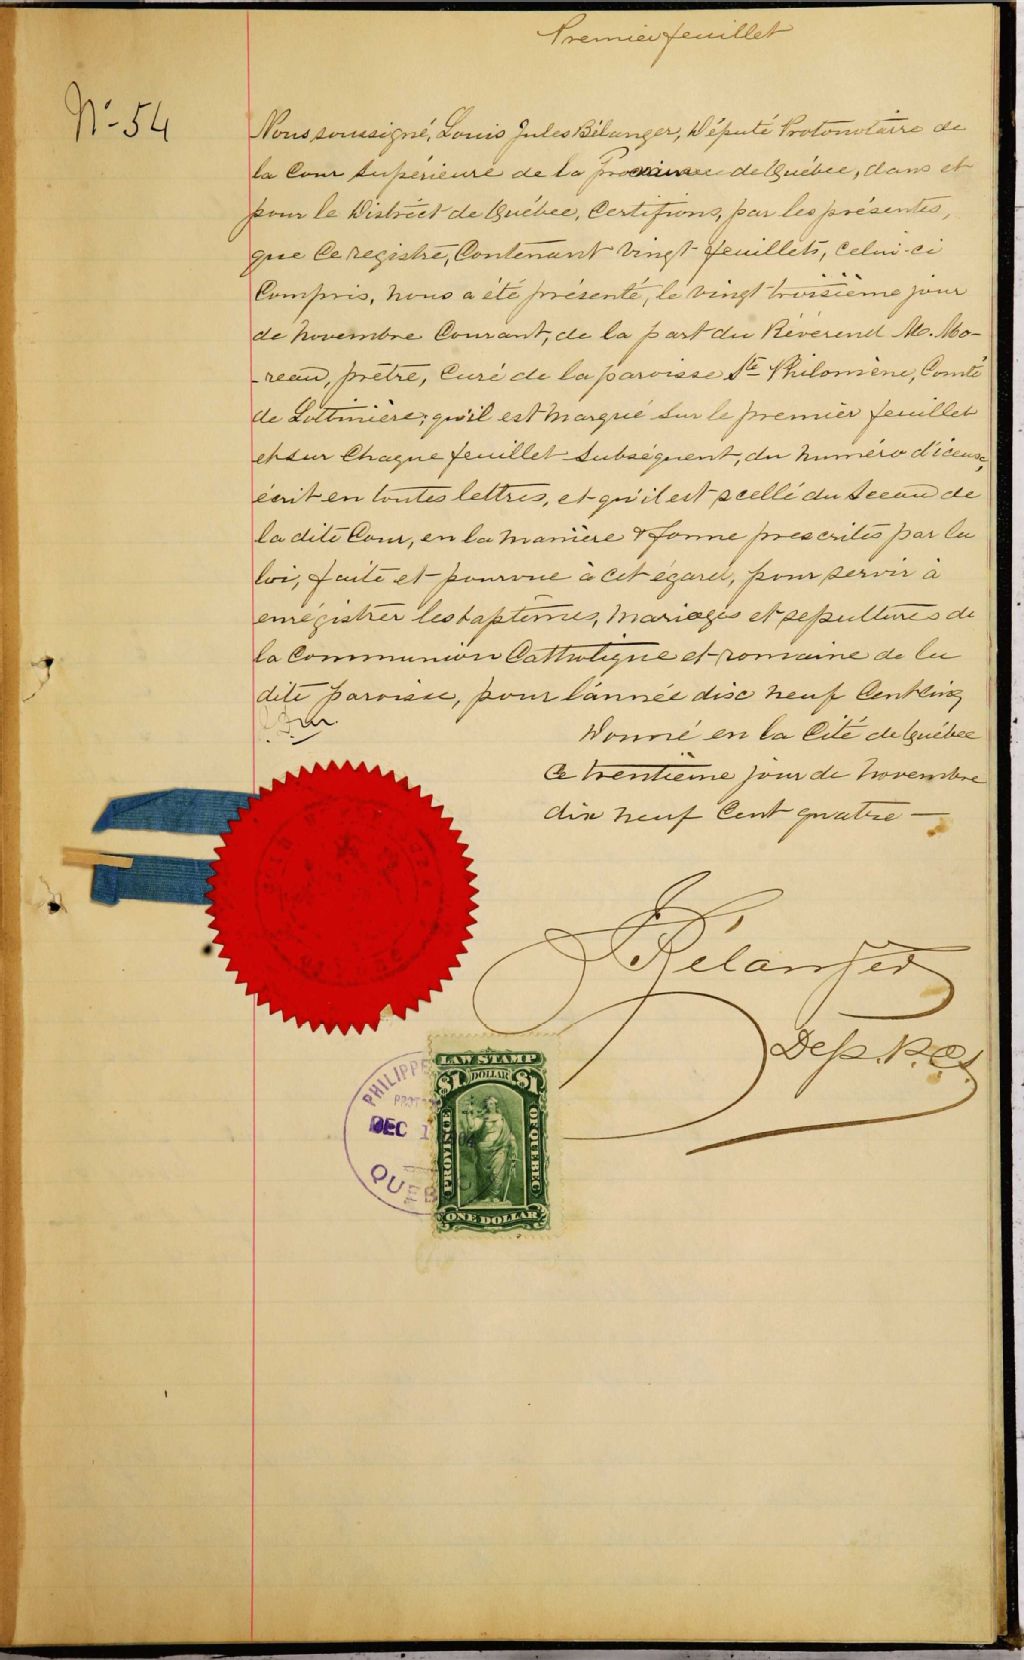 Premier feuillet
No- 54
Nous soussigné, Louis Jules Bélanger, Député Protonotaire de
la Cour Supérieure de la Province de Québec, dans et
pour le District de Québec, Certifions, par les présentes,
que Ce registre, Contenant vingt feuillets, celui-ci
Compris, nous a été présenté, le vingt troisième jour
de novembre Courant, de la part du Révérend M. Mo-
-reau, prêtre, Curé de la paroisse Ste Philomène, Comté
de Lotbinière; qu'il est marqué sur le premier feuillet
et sur Chaque feuillet subséquent, du numéro d'iceux,
écrit en toutes lettres, et qu'il est scellé du Sceau de
la dite Cour, en la manière & forme prescrites par la
loi, faite et pourvue à cet égard, pour servir à
enrégistrer les baptêmes, mariages et sepultures de
la Communion Catholique et romaine de la
dite paroisse, pour l'année dix neuf Cent cinq
Donné en la Cité de Québec
Ce trentième jour de novembre
dix neuf Cent quatre —
Bélanger
Dep. P.C.S.
LAW STAMP
$1 DOLLAR $1
PROVINCE OF QUEBEC
ONE DOLLAR
PHILIPPE
PROT
DEC 1
QUEB